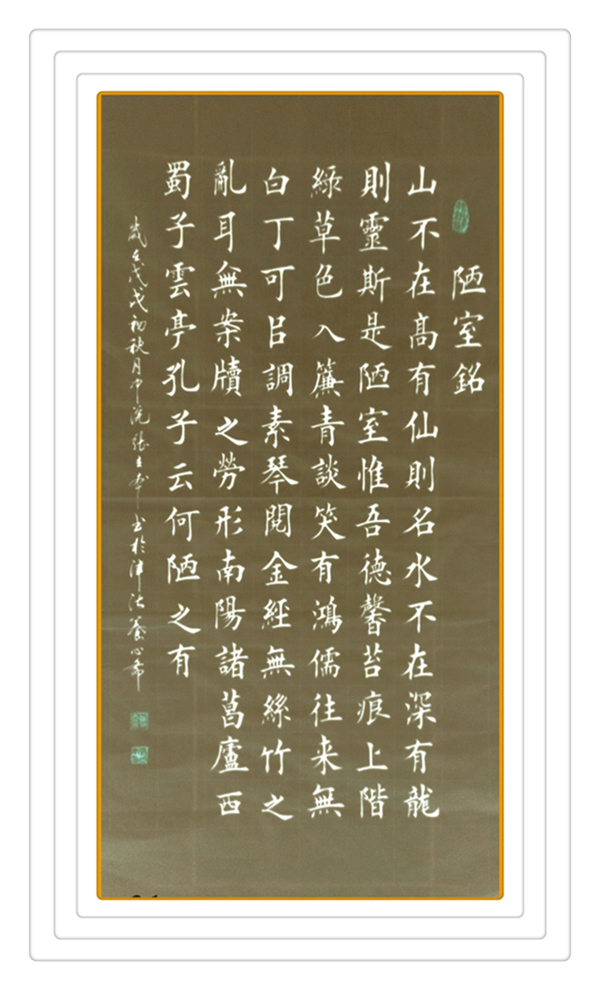 陋室銘
山不在髙有仙則名水不在深有龍
則靈斯是陋室惟吾德馨苔痕上階
綠草色入簾青談笑有鴻儒往来無
白丁可㠯調素琴閱金經無絲竹之
亂耳無案牘之勞形南陽諸葛廬西
蜀子雲亭孔子云何陋之有
歲在戊戌初秋月中浣張立書於津沽養心斋